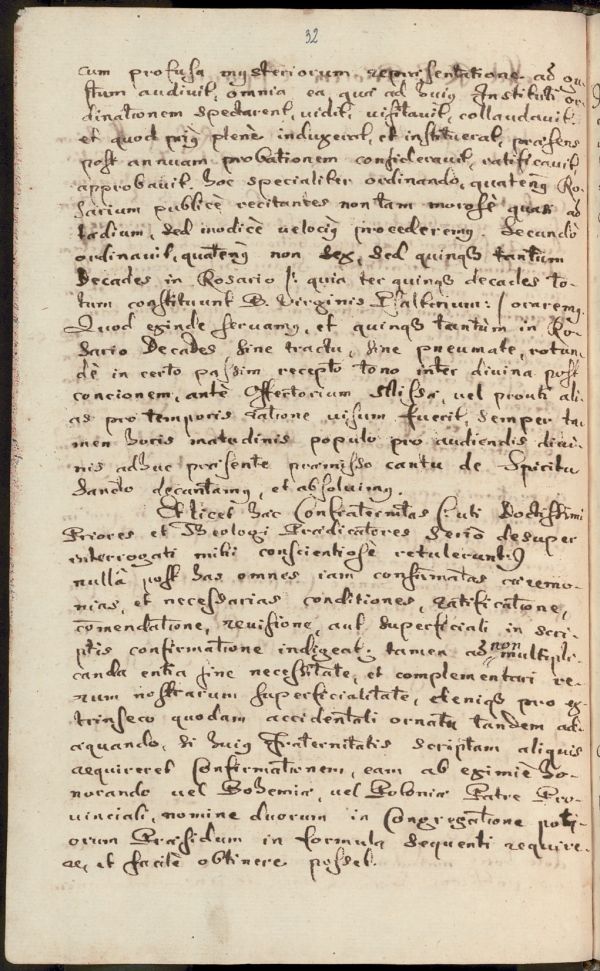 32
cum profusa mysteriorum repraesentatione ad gu-
stum audivit, omnia ea quae ad huius Instituti or-
dinationem spectarent, vidit, visitavit, collaudavit.
et quod prius plene indugerat, et instituerat, praesens
post annuam probationem consideravit, ratificavit,
approbavit. hoc specialiter ordinando, quatenus Ro-
sarium publicè recitantes non tam morosè quasi ad
taedium, sed modicè velocius procederemus. Secundò
ordinavit, quatenus non sex, sed quinque tantum
Decades in Rosario /: quia ter quinque decades to-
tum constituunt B. Virginis Psalterium: / oraremus.
Quod exinde servamus, et quinque tantùm in Ro-
sario Decades sine tractu, sine pneumate, rotun-
dè in certo passim recepto tono inter divina post
concionem, ante Offertorium Missae, vel prouti ali-
as pro temporis ratione visum fuerit, semper ta-
men horis matudinis populo pro audiendis divi-
nis adhuc praesente praemisso cantu de Spiritu
Sancto decantamus, et absolvimus.
Et licet haec Confraternitas (: uti Doctissimi
Priores et Theologi Praedicatores seriò desuper
interrogati mihi conscientiosè retulerunt :)
nullâ post has omnes iam confirmatas caeremo-
nias, et necessarias conditiones, ratificatione,
com̄endatione, revisione, aut superficiali in scri-
ptis confirmatione indigeat; tamen ad non multipli-
canda entia sine necessitate, et complementari re-
rum nostrarum superficialitate, denique pro ex-
trinseco quodam accidentali ornatu tandem ad-
aquando, si huius Fraternitatis scriptam aliquis
requireret Confirmationem, eam ab eximiè ho-
norando vel Bohemiae, vel Poloniae Patre Pro-
vinciali, nomine duorum in Congregatione poti-
orum Praesidum in formula sequenti require-
re, et facilè obtinere posset.